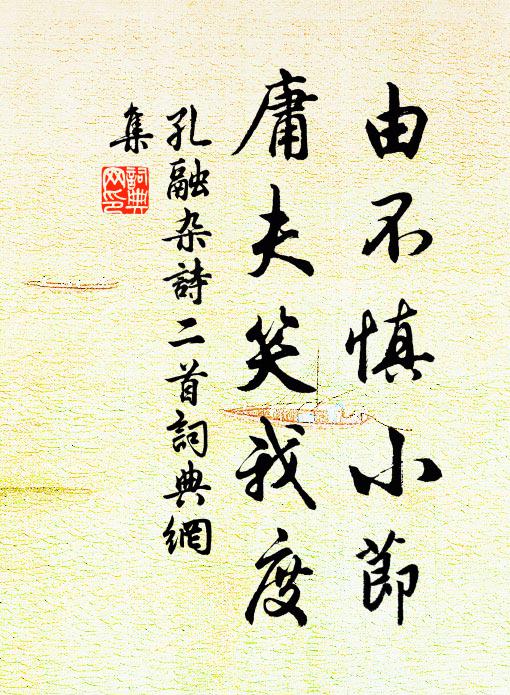 由不慎小節
庸夫笑我度
孔融杂詩二首詞典網
集
詞典
网印